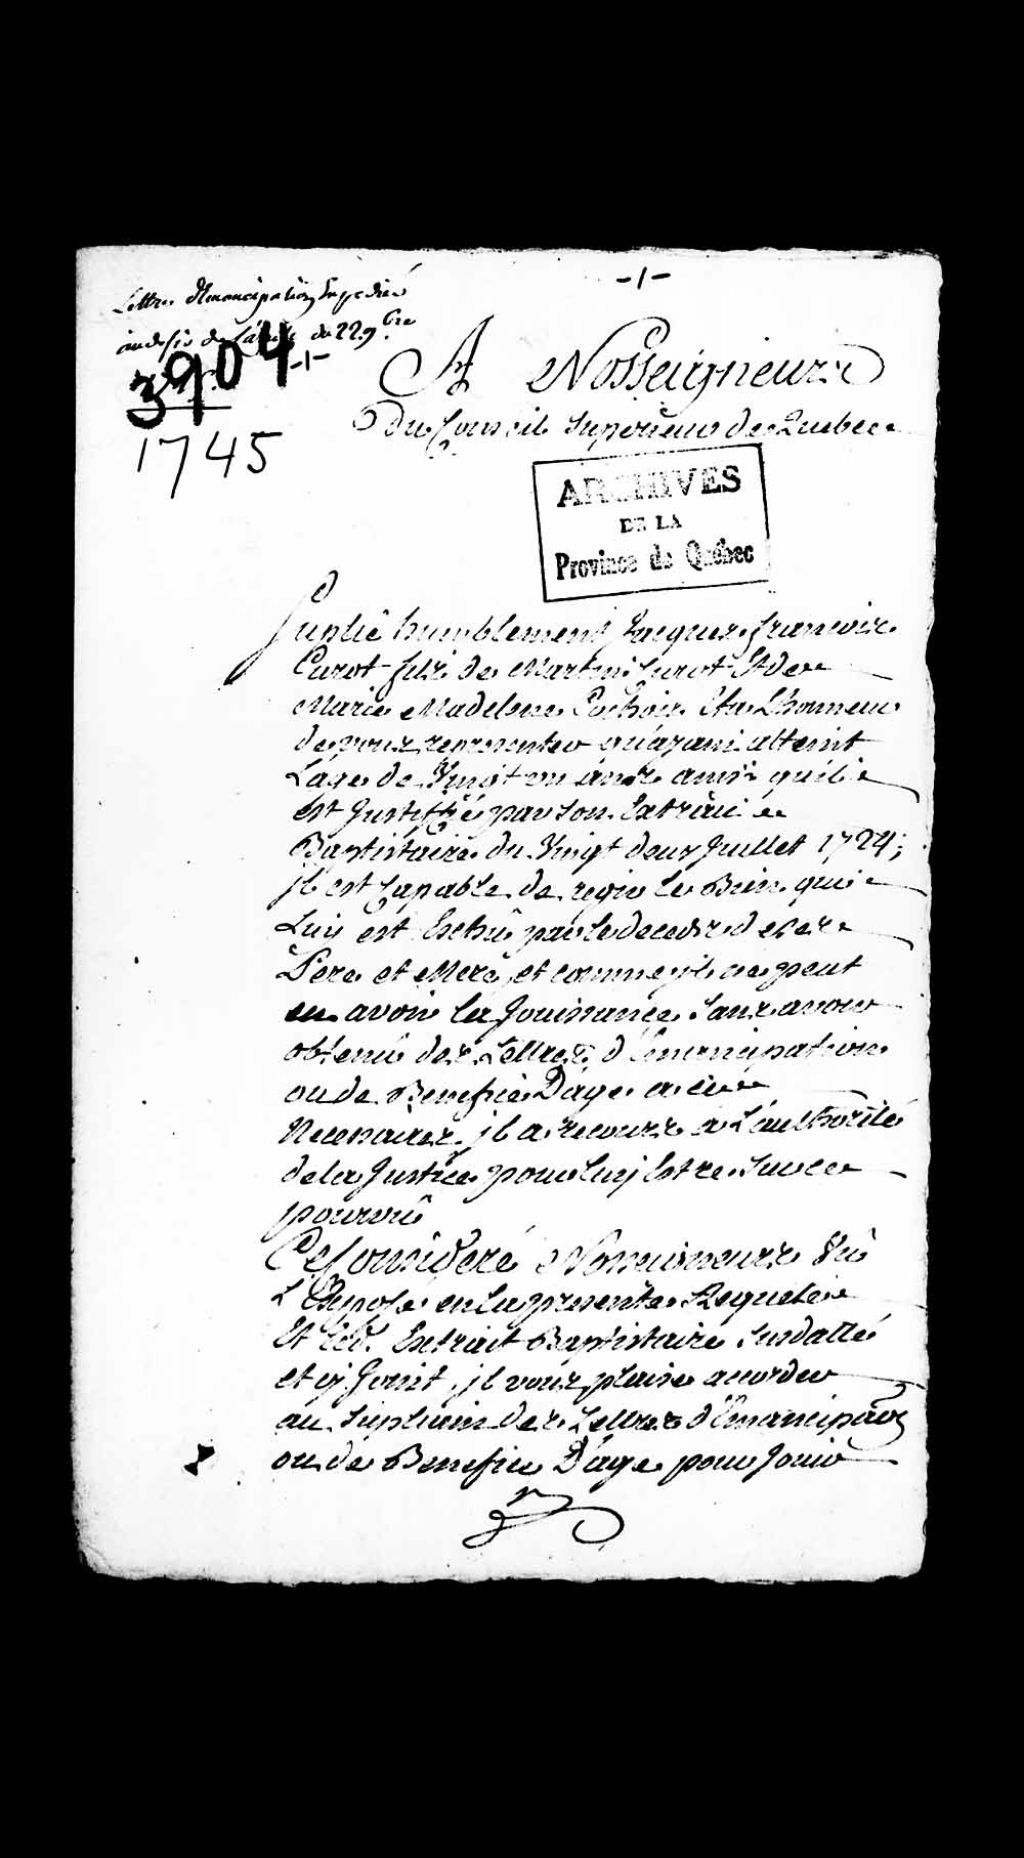 -1-
Lettres d'Emancipation Expediée
au desir de L'arrest du 22. 9.bre
3904
-1-
1745
A Nosseigneurs
Du Conseil Superieur de Quebec
ARCHIVES
DE LA
Province de Québec
Suplié humblement Jacques françois
Curot fils de Martin Curot Et de
Marie Madelene Cochois Et a L'honneur
de vous representer qu'ayant atteint
L'age de Vingt un ans ainsi qu'il
est Justiffié par son Extrait
Baptistaire du Vingt deux Juillet 1724;
jl est Capable de regir le Bien qui
Luy est Echû par le deceds de ses
Pere et Mere, et comme jl ne peut
en avoir la Jouissance Sans avoir
obtenû des Lettres d'Emancipation
ou de Benefice D'age a ce
Necessaires, jl a recours a L'authorité
de la Justice pour luy Estre Sur ce
pourvû
Ce Consideré Nosseigneurs Vû
L'Exposé en la presente Requete
Et led. Extrait Baptistaire Susdatté
et cy Joint, jl vous plaise accorder
au Supliant des Lettres d'Emancipaon
ou de Benefice D'age pour Jouir